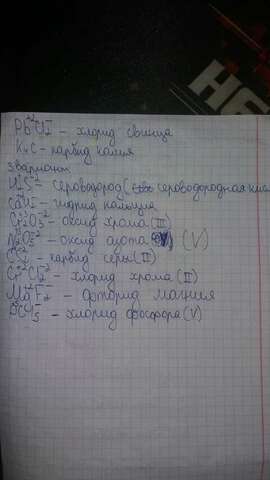 НЕ
– хлорид свинца
K₄C – карбид калия
3 вариант
H₂S – сероводород (сероводородная кис
– гидрид кальция
Cr₂⁺³O₃⁻² – оксид хрома (III)
N₂O₅⁻² – оксид азота (V)
– карбид серы (II)
Cr⁺²Cl₂⁻ – хлорид хрома (II)
Mg⁺²F₂⁻ – фторид магния
PCl₅⁻ – хлорид фосфора (V)